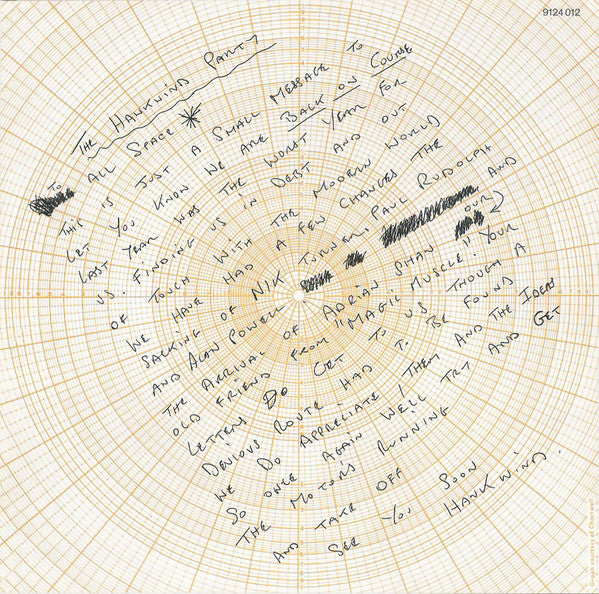 9124 012
THE HAWKWIND PARTY
TO ALL SPACE *
THIS IS JUST A SMALL MESSAGE TO
LET YOU KNOW WE ARE BACK ON COURSE
LAST YEAR WAS THE WORST YEAR FOR
US. FINDING US IN DEBT AND OUT
OF TOUCH WITH THE MODERN WORLD
WE HAVE HAD A FEW CHANGES THE
SACKING OF NIK TURNER, PAUL RUDOLPH
AND ALAN POWELL AND
THE ARRIVAL OF ADRIAN SHAW OUR
OLD FRIEND FROM "MAGIC MUSCLE". YOUR
LETTERS DO GET TO US THOUGH A
DEVIOUS ROUTE HAD TO BE FOUND
WE DO APPRECIATE THEM AND THE IDEAS
SO ONCE AGAIN WE'LL TRY AND GET
THE MOTORS RUNNING
AND TAKE OFF
SEE YOU SOON
HAWKWIND.
Graph courtesy of Chartwell